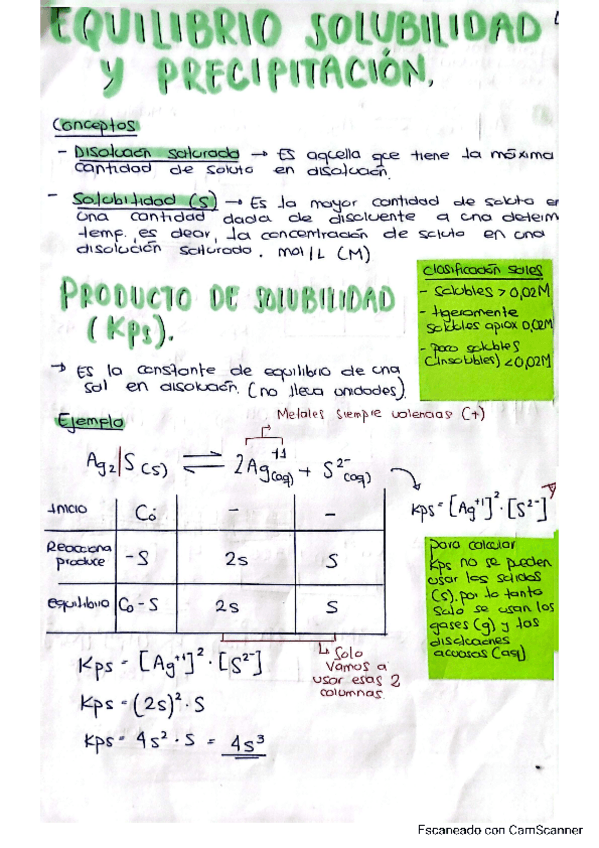 EQUILIBRIO SOLUBILIDAD
Y PRECIPITACIÓN.
Conceptos
- Disolución saturada → Es aquella que tiene la máxima
cantidad de soluto en disolución.
- Solubilidad (s) → Es la mayor cantidad de soluto en
una cantidad dada de disolvente a una determ
temp. es decir, la concentración de soluto en una
disolución saturado. mol/L (M)
Clasificación sales
- Solubles > 0,02M
- ligeramente
solubles aprox 0,02M
- poco solubles
(Insolubles) < 0,02M
PRODUCTO DE SOLUBILIDAD
(Kps).
→ Es la constante de equilibrio de una
sal en disolución. (no lleva unidades).
Metales siempre valencias (+)
Ejemplo
Ag2|S (s) ⇌ 2Ag+1(aq) + S2-(aq)
Kps = [Ag+1]2 · [S2-]
Inicio Co - -
Reacciona produce -S 2s S
equilibrio Co-S 2s S
para calcular
Kps no se pueden
usar los sólidos
(s). por lo tanto
solo se usan los
gases (g) y las
disoluciones
acuosas (aq)
↳ Solo
vamos a
usar esas 2
columnas
Kps = [Ag+1]2 · [S2-]
Kps = (2s)2 · S
Kps = 4s2 · S = 4s3
Escaneado con CamScanner